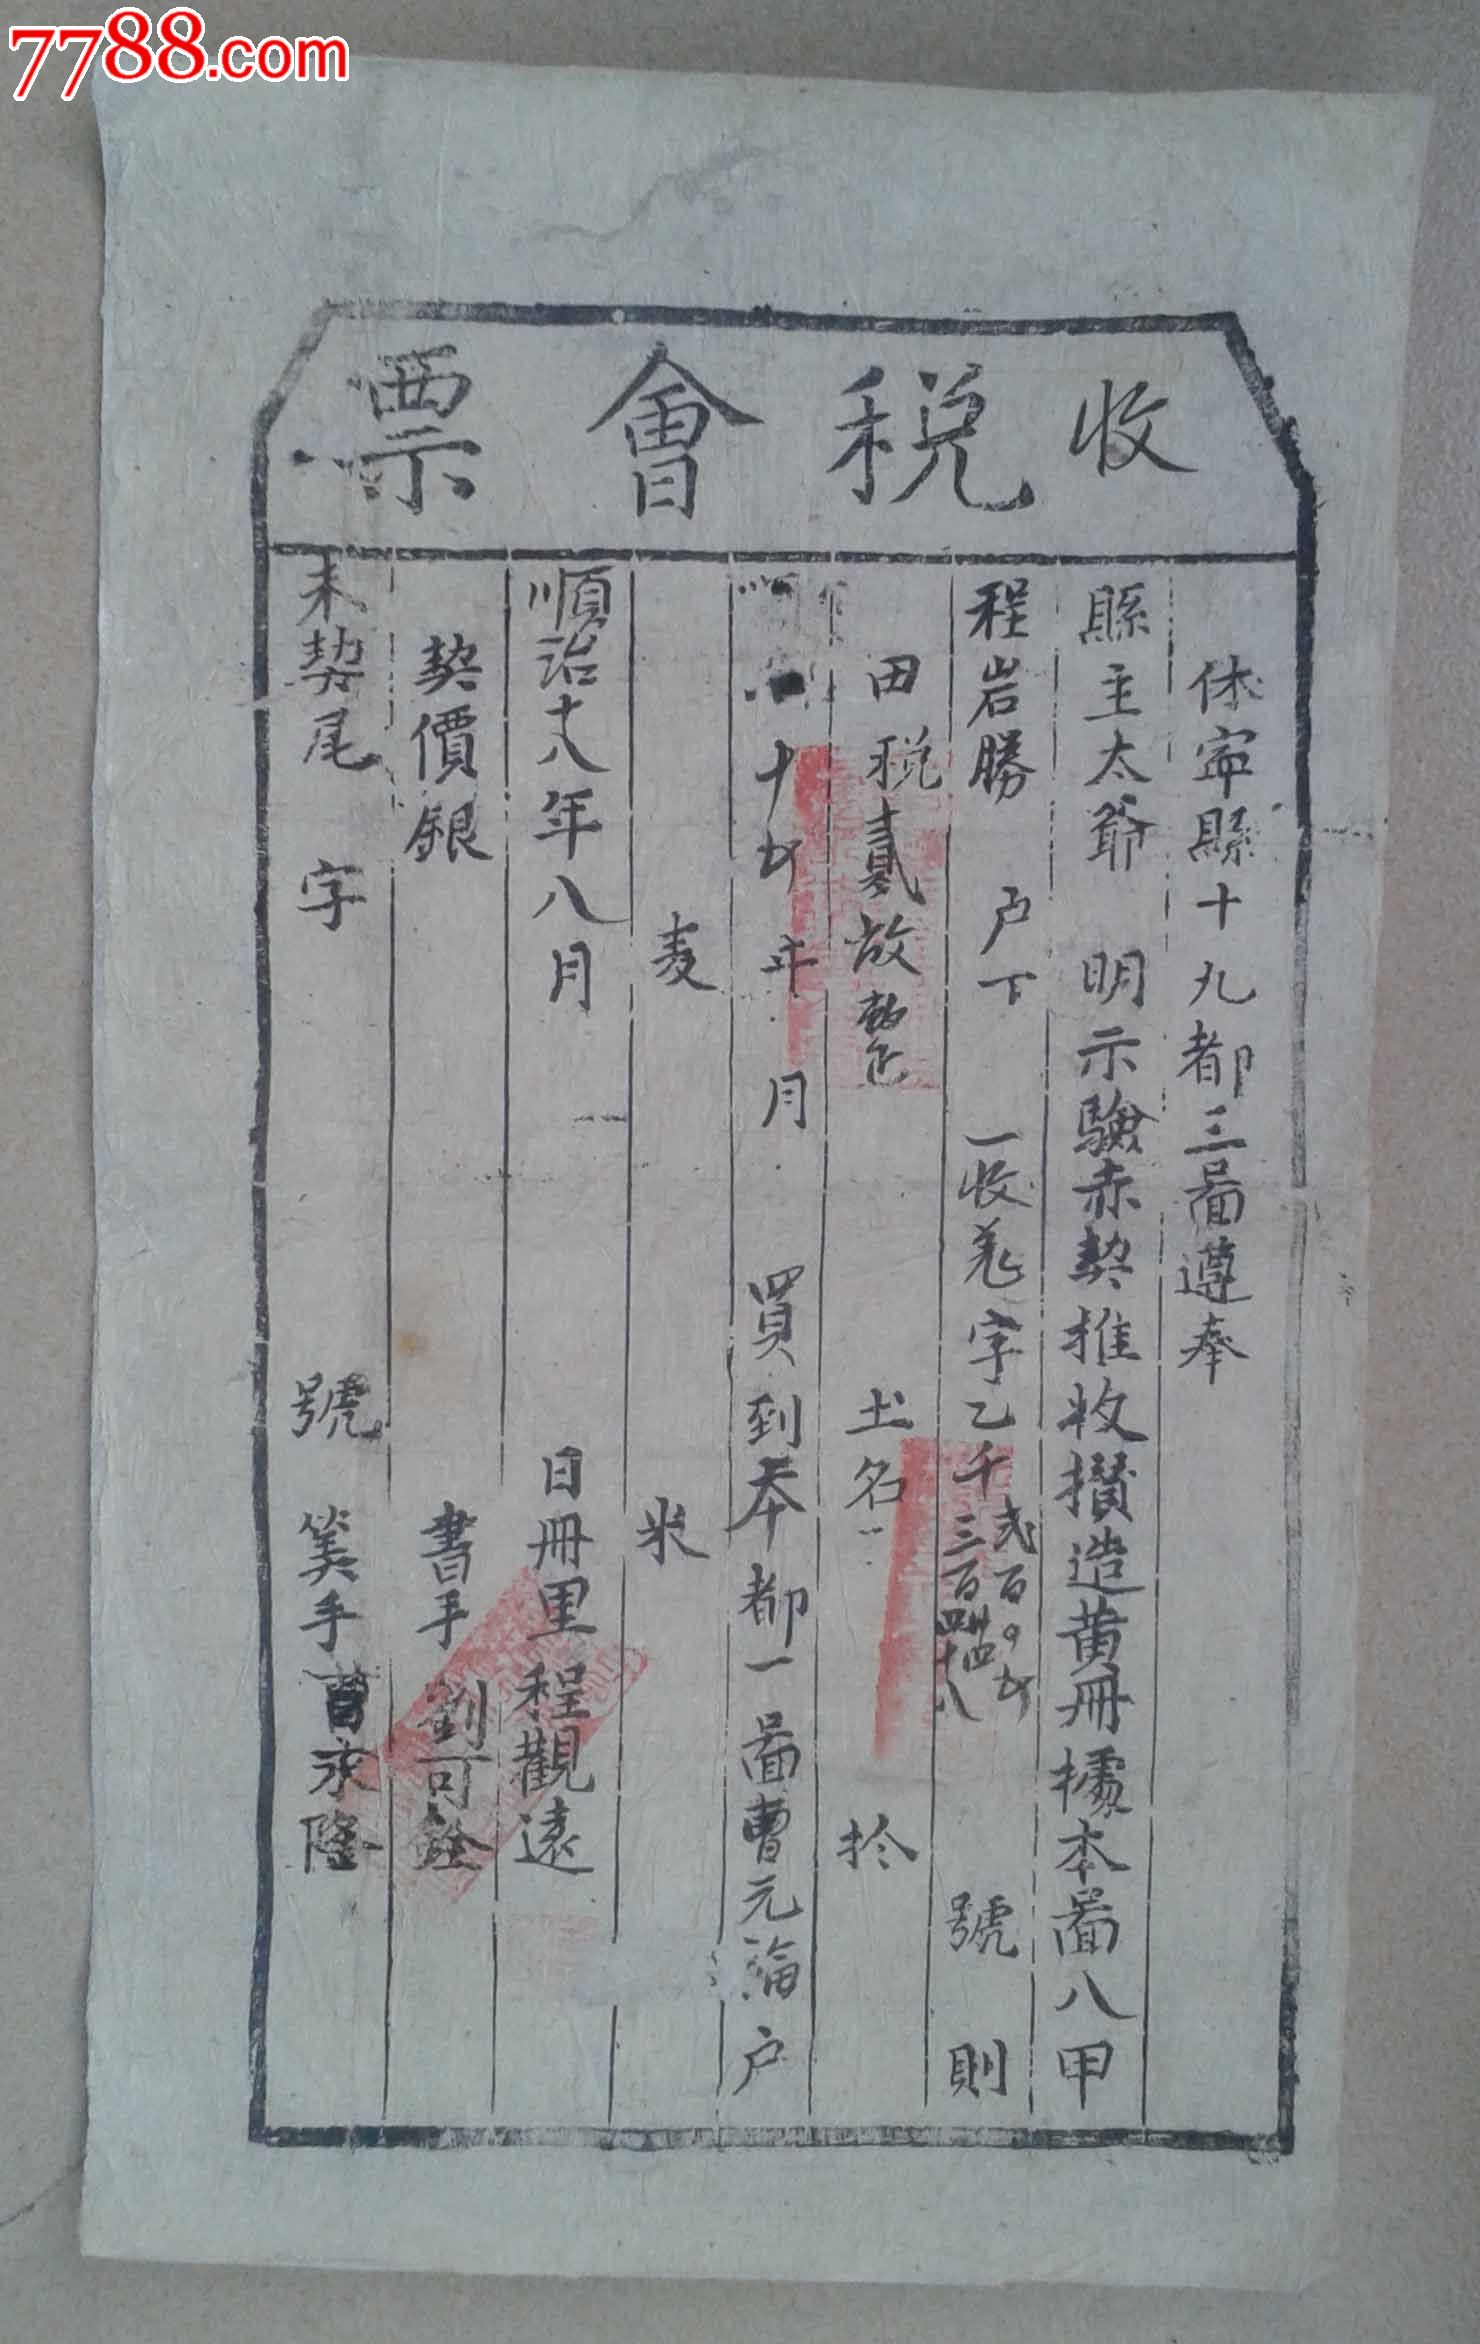 7788.com
收稅會票
休寧縣十九都三啚遵奉
縣主太爺 明示驗赤契推收攢造黄冊據本啚八甲
程岩勝 户下 一收羗字乙千三百四十八 弍百〇 號 則
田稅貳 整 土名 扵
十 年 月 買到本都一啚曹元 户
麦 米
順治十八年八月 日冊里 程觀遠
契價銀 書手 劉可銓
未契尾 字 號 筭手 曹永隆